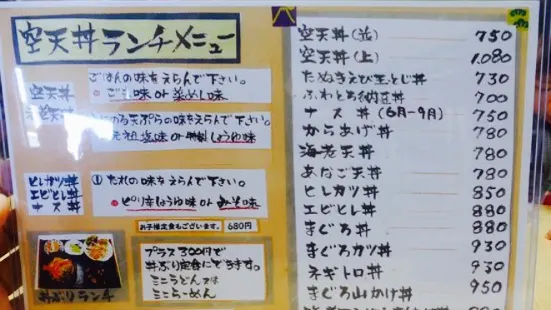 空天丼ランチメニュー
空天丼
ごはんの味をえらんで下さい。
ごま味 or 菜めし味
天ぷらの味をえらんで下さい。
塩味 or 特製しょうゆ味
ヒレカツ丼
エビヒレ丼
ナス丼
① たれの味をえらんで下さい。
ピリ辛しょうゆ味 or みそ味
お子様定食もございます。 680円
プラス300円で
丼ぶり定食にできます。
ミニうどん又は
ミニらーめん
丼ぶりランチ
空天丼(並) 750
空天丼(上) 1,080
たぬきえび玉とじ丼 730
ふわとろ納豆丼 700
ナス丼 (6月-9月) 750
からあげ丼 780
海老天丼 780
あなご天丼 780
ヒレカツ丼 850
エビヒレ丼 880
まぐろ丼 880
まぐろカツ丼 930
ネギトロ丼 930
まぐろ山かけ丼 950